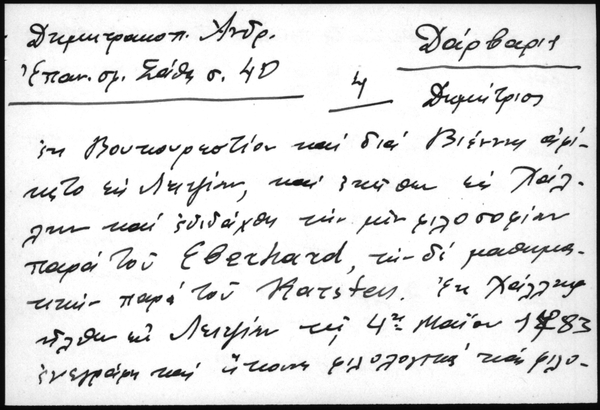 Δημητρακοπ. Ἀνδρ.
Δάρβαρις
Ἐπαν. σμ. Σάθα σ. 40
4
Δημήτριος
ἐκ Βουκουρεστίου καί διά Βιέννης ἀφί-
κετο εἰς Λειψίαν, καί ἐκεῖθεν εἰς Χάλ-
λην καί ἐδιδάχθη τήν μέν φιλοσοφίαν
παρά τοῦ Eberhard, τήν δέ μαθημα-
τικήν παρά τοῦ Karsten. Ἐκ Χάλλης
ἦλθεν εἰς Λειψίαν τῇ 4ῃ Μαΐου 1783
ἐνεγράφη καί ἤκουσε φιλολογικά καί φιλο-